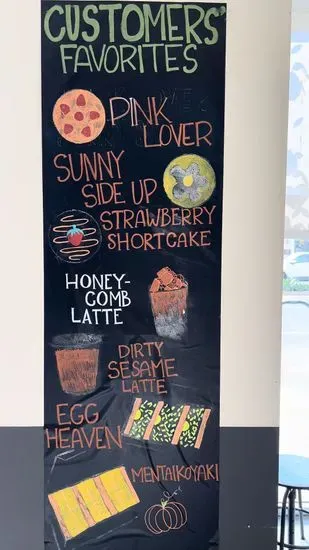 CUSTOMERS'
FAVORITES
PINK
LOVER
SUNNY
SIDE UP
STRAWBERRY
SHORTCAKE
HONEY-
COMB
LATTE
DIRTY
SESAME
LATTE
EGG
HEAVEN
MENTAIKOYAKI